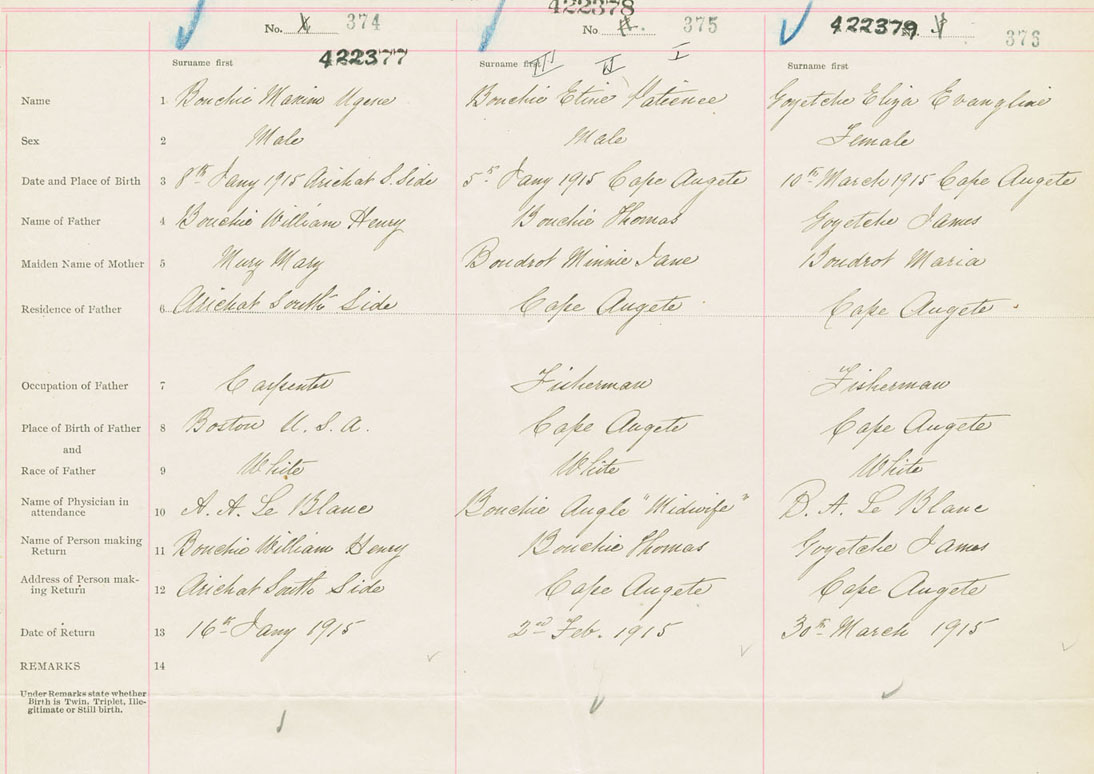 422378
No. 374 No 375 422379 376
422377
Surname first Surname first Surname first
III II I
Name 1 Bouchie Maxim Ugene Bouchie Etine Patience Goyetche Eliza Evangline
Sex 2 Male Male Female
Date and Place of Birth 3 8th Jany 1915 Arichat S. Side 5th Jany 1915 Cape Augete 10th March 1915 Cape Augete
Name of Father 4 Bouchie William Henry Bouchie Thomas Goyetche James
Maiden Name of Mother 5 Mury Mary Boudrot Minnie Jane Boudrot Maria
Residence of Father 6 Arichat South Side Cape Augete Cape Augete
Occupation of Father 7 Carpenter Fisherman Fisherman
Place of Birth of Father 8 Boston U. S. A. Cape Augete Cape Augete
and
Race of Father 9 White White White
Name of Physician in
attendance 10 A. A. Le Blanc Bouchie Augle "Midwife" B. A. Le Blanc
Name of Person making
Return 11 Bouchie William Henry Bouchie Thomas Goyetche James
Address of Person mak-
ing Return 12 Arichat South Side Cape Augete Cape Augete
Date of Return 13 16th Jany 1915 2nd Feb. 1915 30th March 1915
REMARKS 14
Under Remarks state whether
Birth is Twin, Triplet, Ille-
gitimate or Still birth.